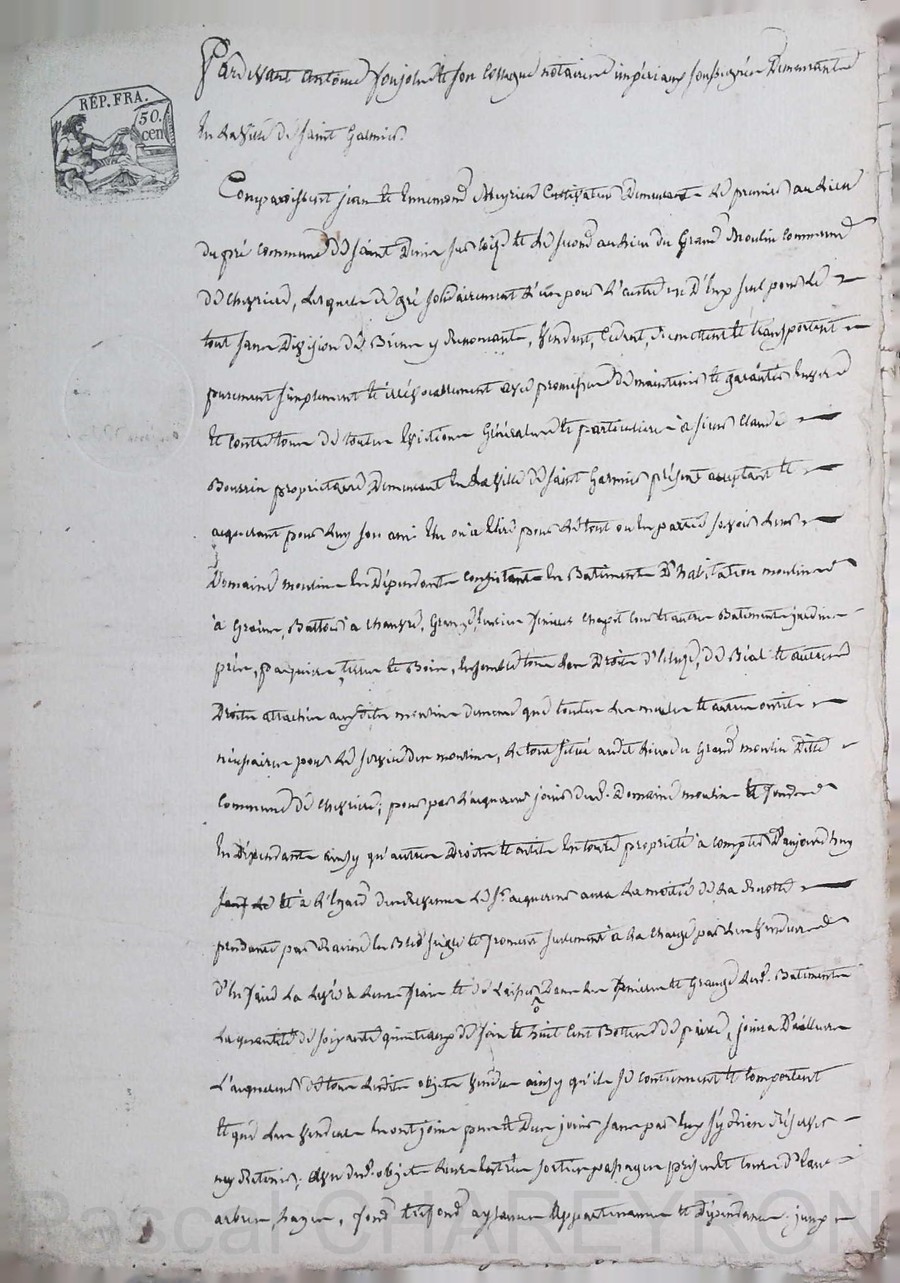 REP. FRA.
50.
cen
Pardevant antoine et son collegue notaires impériaux soussignés Demeurants
En La Ville de saint Galmier
Comparoissent jean et Ennemond Meyrieu Cultivateurs Demeurant Le premier au Lieu
du pré commune de saint Denis sur coize et Le second au Lieu du Grand Moulin commune
de chevrieres, Lesquels de gré solidairement L'un pour L'autre un D'Eux seul pour Le
tout sans Division de Biens y renonçants, Vendent, Cedent, remettent et transportent
purement simplement et irrévocablement avec promesse de maintenir et garantir Envers
et contre tous de toutes Evictions Générales et particulieres à sieur Claude
Boussin proprietaire Demeurant En La Ville de saint Galmier présent acceptant et
acquerant pour Luy son ami Elu ou à Elire pour Le tout ou En partie sçavoir Leurs
Domaine moulins En Dépendants consistants En Batiments D'habitation moulins
à Grains, Battoir à chanvre, Grange, Ecuries fenieres chapit Cour et autres Batiments jardins
prés, paquiers terres et Bois, Ensemble tous Les Droits D'Eluze, de Béal et autres
Droits attachés auxdits moulins de meme que toutes Les meules et autres outils
nécessaires pour Le service des moulins, Le tout situé audit Lieu du Grand moulin Ditte
Commune de chevrieres, pour par L'acquereur jouir desd. Domaine moulins et fonds
En Dépendants ainsy qu'autres Droits et outils En toute propriété à compter D'aujourd'huy
et à L'égard des Revenus Le Sr. acquereur aura La moitié de La Recolte
pendante par Racines En Bled seigle et froment seulement à La charge par Les Vendeurs
D'En faire La Levée à Leurs frais et de Laisser Dans Les fenieres et Grange desd. Batiments
La quantité de soixante quintaux de foin et huit Cent Bottes de paille, jouira D'ailleurs
L'acquereur de tous Lesdits objets Vendus ainsy qu'ils se contiennent et comportent
et que Les Vendeurs En ont joui pu et Du jouir sans par Eux s'y Rien Réserver
ny Retenir, desd. objets Leurs Entrées sorties passages prises et cours D'Eaux
arbres hayes, fond tréfond aysances appartenances et Dépendances jusqu'
Pascal CHAREYRON